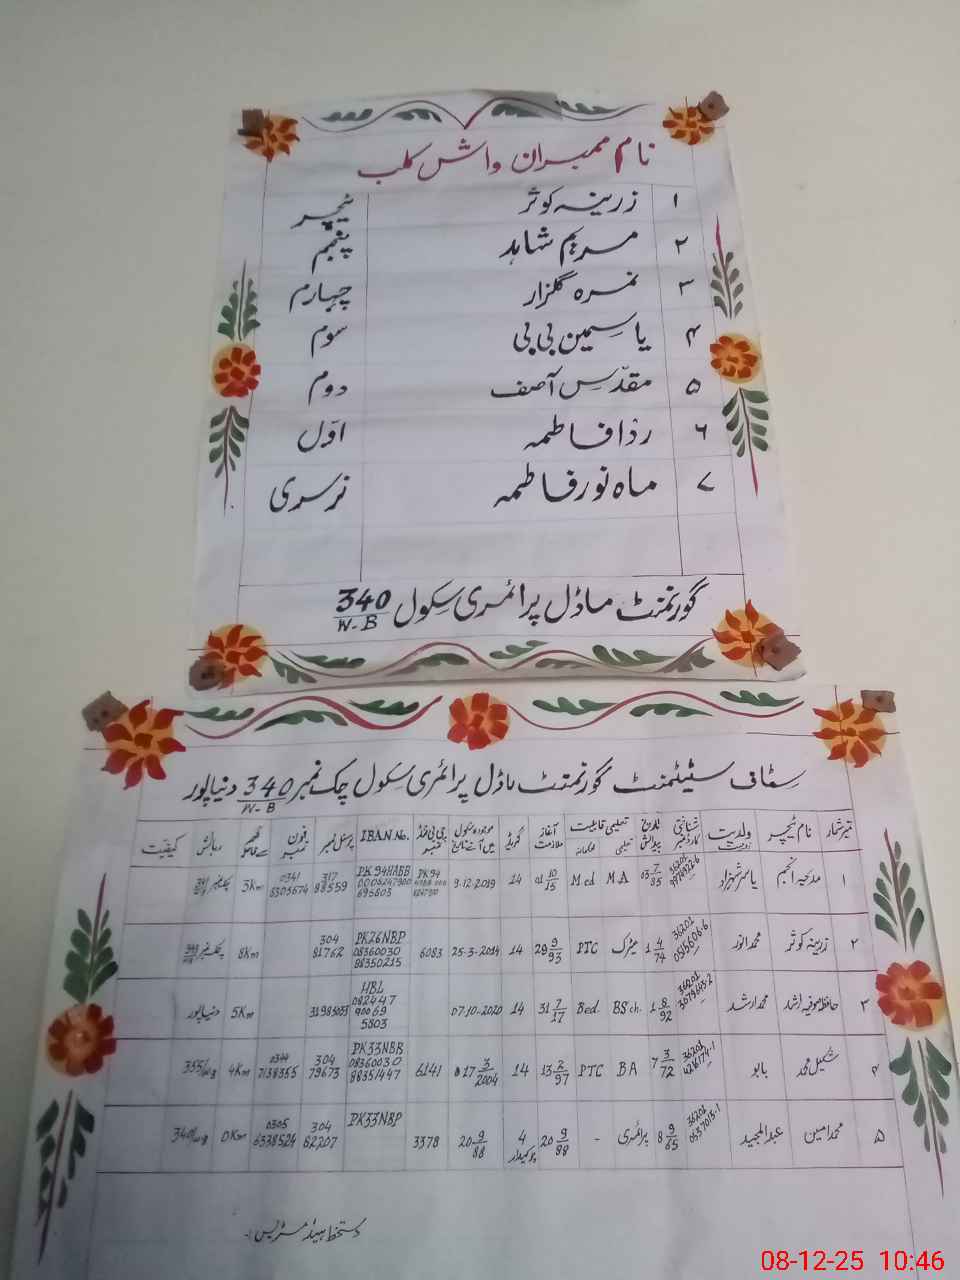 نام ممبران واش کلب
۱ زرینہ کوثر ٹیچر
۲ مریم شاہد پنجم
۳ نمرہ گلزار چہارم
۴ یاسمین بی بی سوم
۵ مقدس آصف دوم
۶ ردا فاطمہ اول
۷ ماہ نور فاطمہ نرسری
گورنمنٹ ماڈل پرائمری سکول 340/W-B
سٹاف سٹیٹمنٹ گورنمنٹ ماڈل پرائمری سکول چک نمبر 340/W-B دنیاپور
نمبر شمار نام ٹیچر ولدیت شناختی کارڈ نمبر تاریخ پیدائش تعلیمی قابلیت آغاز ملازمت گریڈ موجودہ سکول میں آنے تاریخ IBAN No. پرسنل نمبر فون نمبر رہائش کیفیت
۱ مدیحہ انجم یاسر شہزاد M A Med 01 10/15 14 9.12.2019 PK94HABB 317 88559 0341 6305674 3Km
۲ زرینہ کوثر محمد انور 36201 0515606-6 1 4/74 میٹرک PTC 29 9/93 14 25-3-2014 6083 PK26NBP 08360030 98350215 304 81762 8Km چک نمبر
۳ محمد ارشد 36201 1 8/92 BSch. Bed. 31 7/17 14 07-10-2020 HBL 082447 90069 5803 5Km دنیاپور
۴ شکیل محمد بابو 36201 7 3/72 B A PTC 13 2/97 14 17 3/2004 6141 PK33NBP 08360030 88351447 304 79673 0344 7138355 4Km 355/WB
۵ محمد امین عبدالمجید 36201 0537015-1 8 9/65 پرائمری - 20 9/88 4 چوکیدار 20 9/88 3378 PK33NBP 304 62207 0305 6338524 0Km 340/WB
دستخط ہیڈ مسٹریس :-
08-12-25 10:46